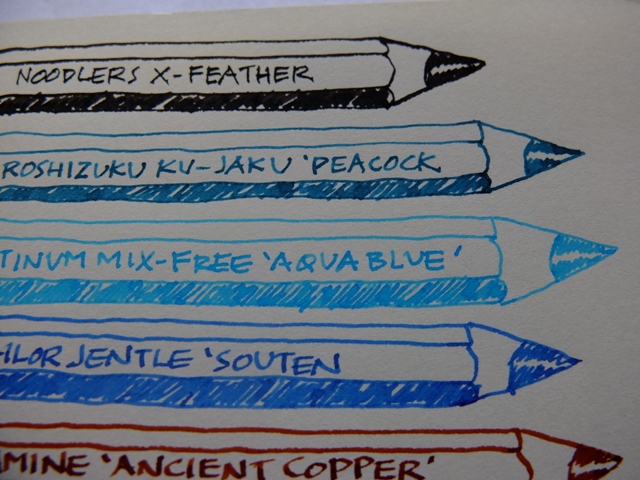 NOODLERS X-FEATHER
ROSHIZUKU KU-JAKU 'PEACOCK
TINUM MIX-FREE 'AQUA BLUE'
ILOR JENTLE 'SOUTEN
MINE 'ANCIENT COPPER'